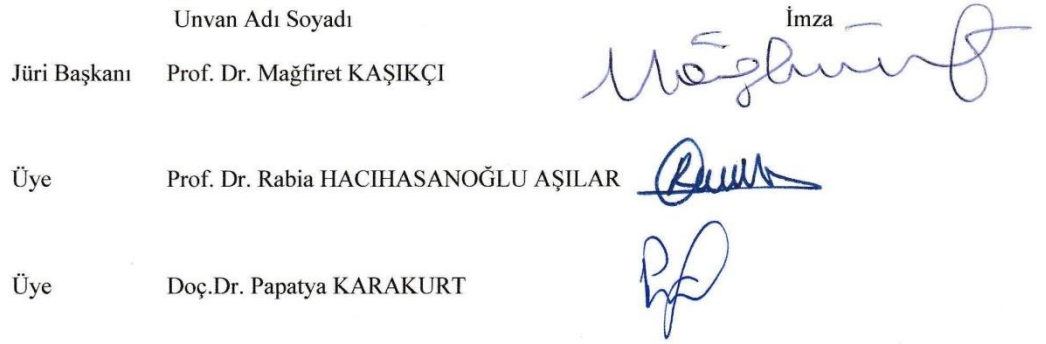 Unvan Adı Soyadı İmza
Jüri Başkanı Prof. Dr. Mağfiret KAŞIKÇI
Üye Prof. Dr. Rabia HACIHASANOĞLU AŞILAR
Üye Doç.Dr. Papatya KARAKURT